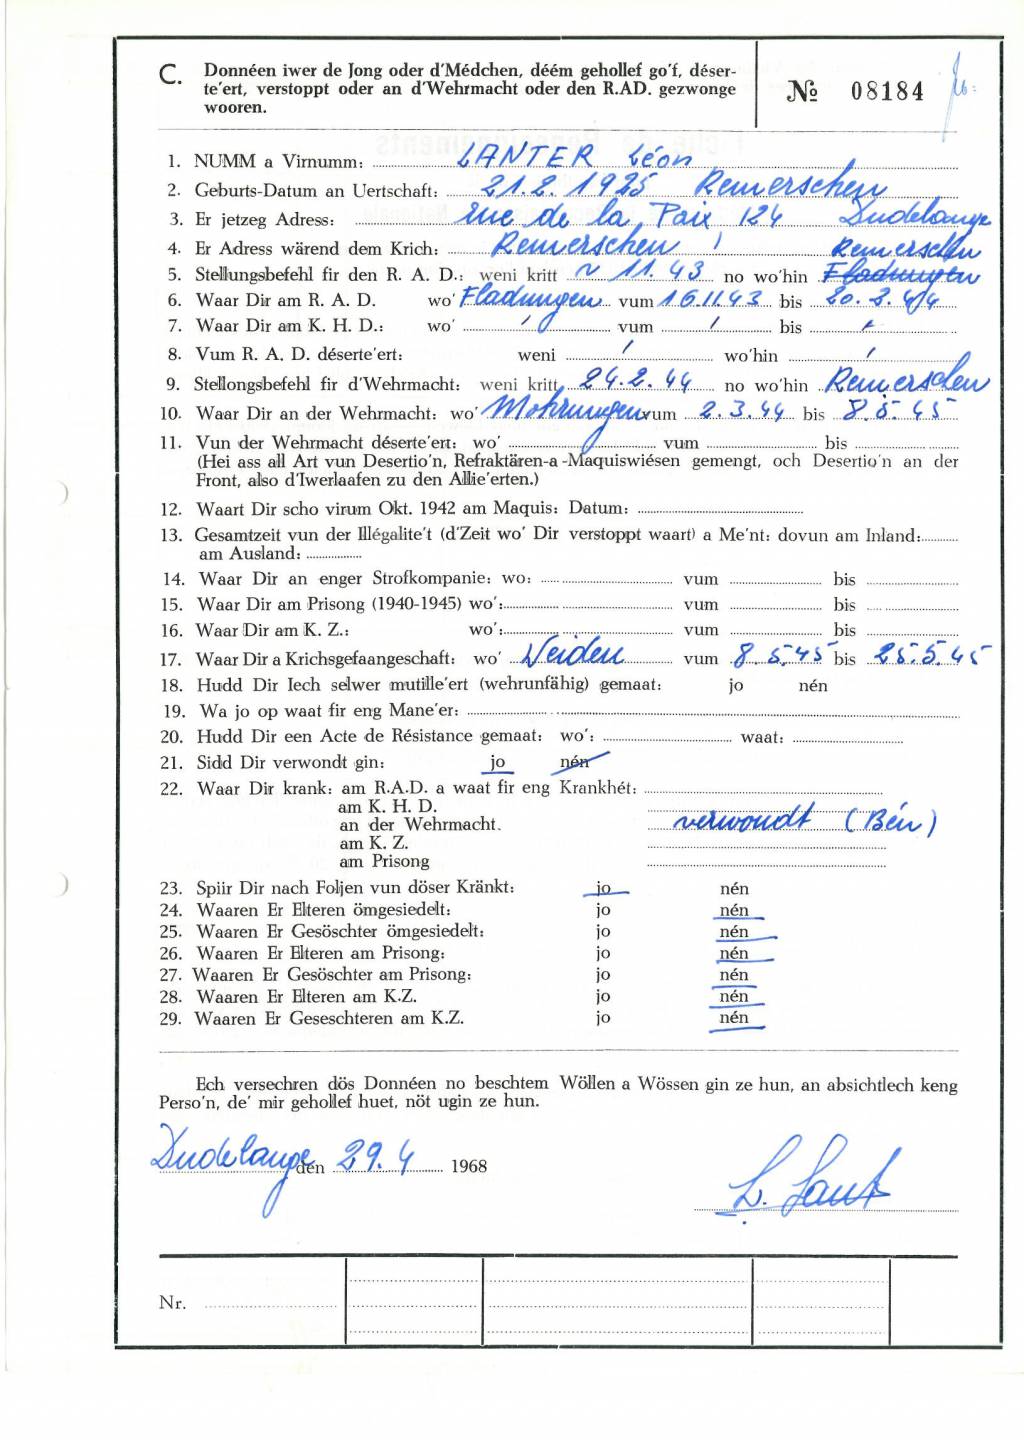 C. Donnéen iwer de Jong oder d'Médchen, déém gehollef go'f, déser-
te'ert, verstoppt oder an d'Wehrmacht oder den R.AD. gezwonge
wooren.
№ 08184
1. NUMM a Virnumm: LANTER Léon
2. Geburts-Datum an Uertschaft: 21.2.1925 Remerschen
3. Er jetzeg Adress: Rue de la Paix 124 Dudelange
4. Er Adress wärend dem Krich: Remerschen / Remerschen
5. Stellungsbefehl fir den R. A. D.: weni kritt ~ 11.43 no wo'hin Fladungen
6. Waar Dir am R. A. D. wo' Fladungen vum 16.11.43 bis 20.2.44
7. Waar Dir am K. H. D.: wo' / vum / bis /
8. Vum R. A. D. déserte'ert: weni / wo'hin /
9. Stellongsbefehl fir d'Wehrmacht: weni kritt 24.2.44 no wo'hin Remerschen
10. Waar Dir an der Wehrmacht: wo' Mohrungen vum 2.3.44 bis 8.5.45
11. Vun der Wehrmacht déserte'ert: wo' vum bis
(Hei ass all Art vun Desertio'n, Refraktären-a-Maquiswiésen gemengt, och Desertio'n an der
Front, also d'Iwerlaafen zu den Allie'erten.)
12. Waart Dir scho virum Okt. 1942 am Maquis: Datum:
13. Gesamtzeit vun der Illégalite't (d'Zeit wo' Dir verstoppt waart) a Me'nt: dovun am Inland:
am Ausland:
14. Waar Dir an enger Strofkompanie: wo: vum bis
15. Waar Dir am Prisong (1940-1945) wo': vum bis
16. Waar Dir am K. Z.: wo': vum bis
17. Waar Dir a Krichsgefaangeschaft: wo' Weiden vum 8.5.45 bis 25.5.45
18. Hudd Dir Iech selwer mutille'ert (wehrunfähig) gemaat: jo nén
19. Wa jo op waat fir eng Mane'er:
20. Hudd Dir een Acte de Résistance gemaat: wo': waat:
21. Sidd Dir verwondt gin: jo nén
22. Waar Dir krank: am R.A.D. a waat fir eng Krankhét:
am K. H. D.
an der Wehrmacht. verwondt (Bén)
am K. Z.
am Prisong
23. Spiir Dir nach Foljen vun döser Kränkt: jo nén
24. Waaren Er Elteren ömgesiedelt: jo nén
25. Waaren Er Gesöschter ömgesiedelt: jo nén
26. Waaren Er Elteren am Prisong: jo nén
27. Waaren Er Gesöschter am Prisong: jo nén
28. Waaren Er Elteren am K.Z. jo nén
29. Waaren Er Geseschteren am K.Z. jo nén
Ech versechren dös Donnéen no beschtem Wöllen a Wössen gin ze hun, an absichtlech keng
Perso'n, de' mir gehollef huet, nöt ugin ze hun.
Dudelange den 29.4 1968
L. Lant
Nr.